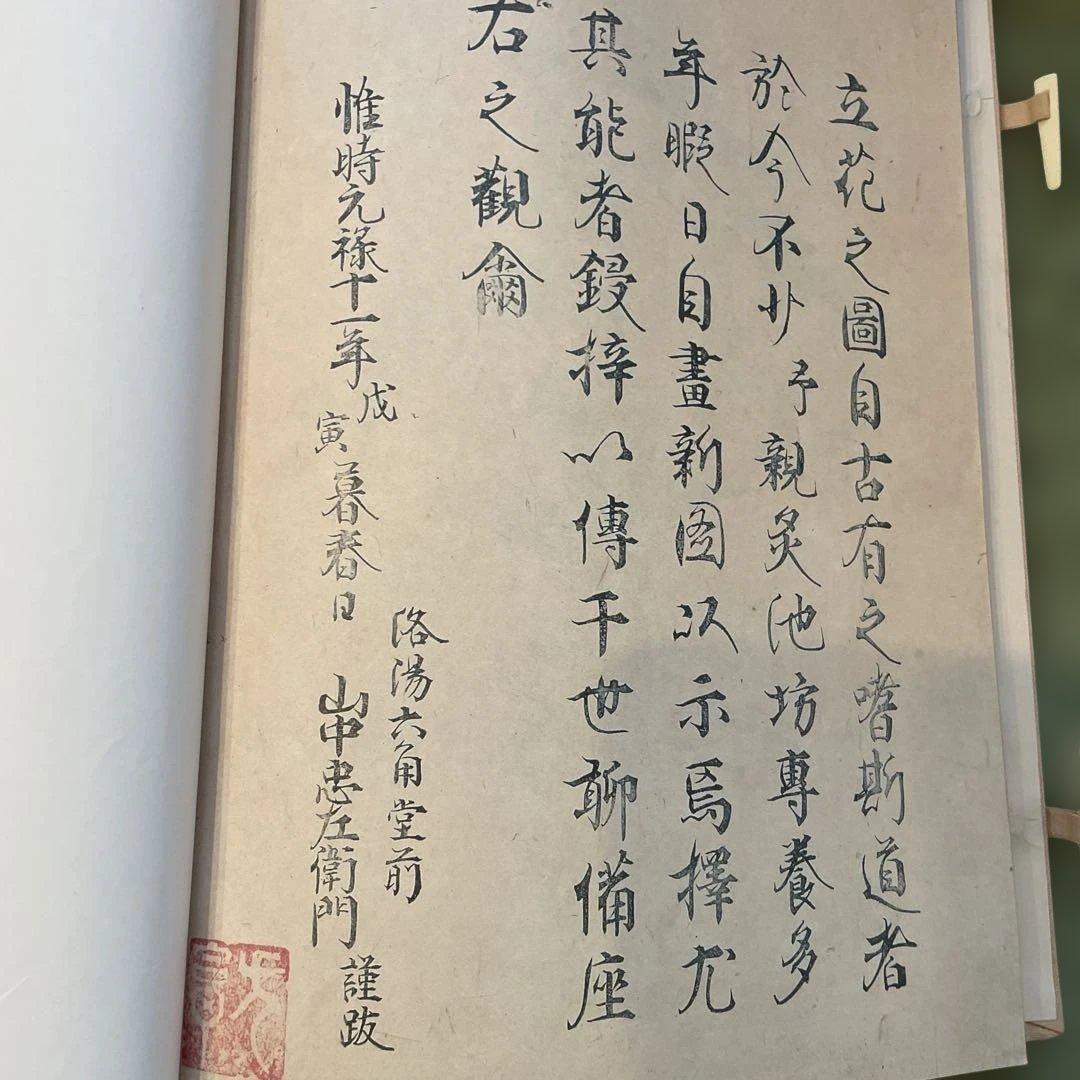 立花之圖自古有之嗜斯道者
於今不少予親炙池坊專養多
年暇日自畫新図以示焉擇尤
其能者鋟梓以傳千世聊備座
右之觀爾
惟時元禄十一年戊寅暮春日
洛陽六角堂前
山中忠左衛門謹跋